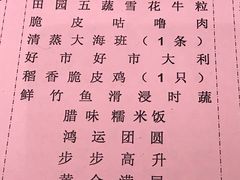 田园五蔬雪花牛粒
脆皮咕噜肉
清蒸大海班（1条）
好市好市大利
稻香脆皮鸡（1只）
鲜竹鱼滑浸时蔬
腊味糯米饭
鸿运团圆
步步高升
黄金满屋